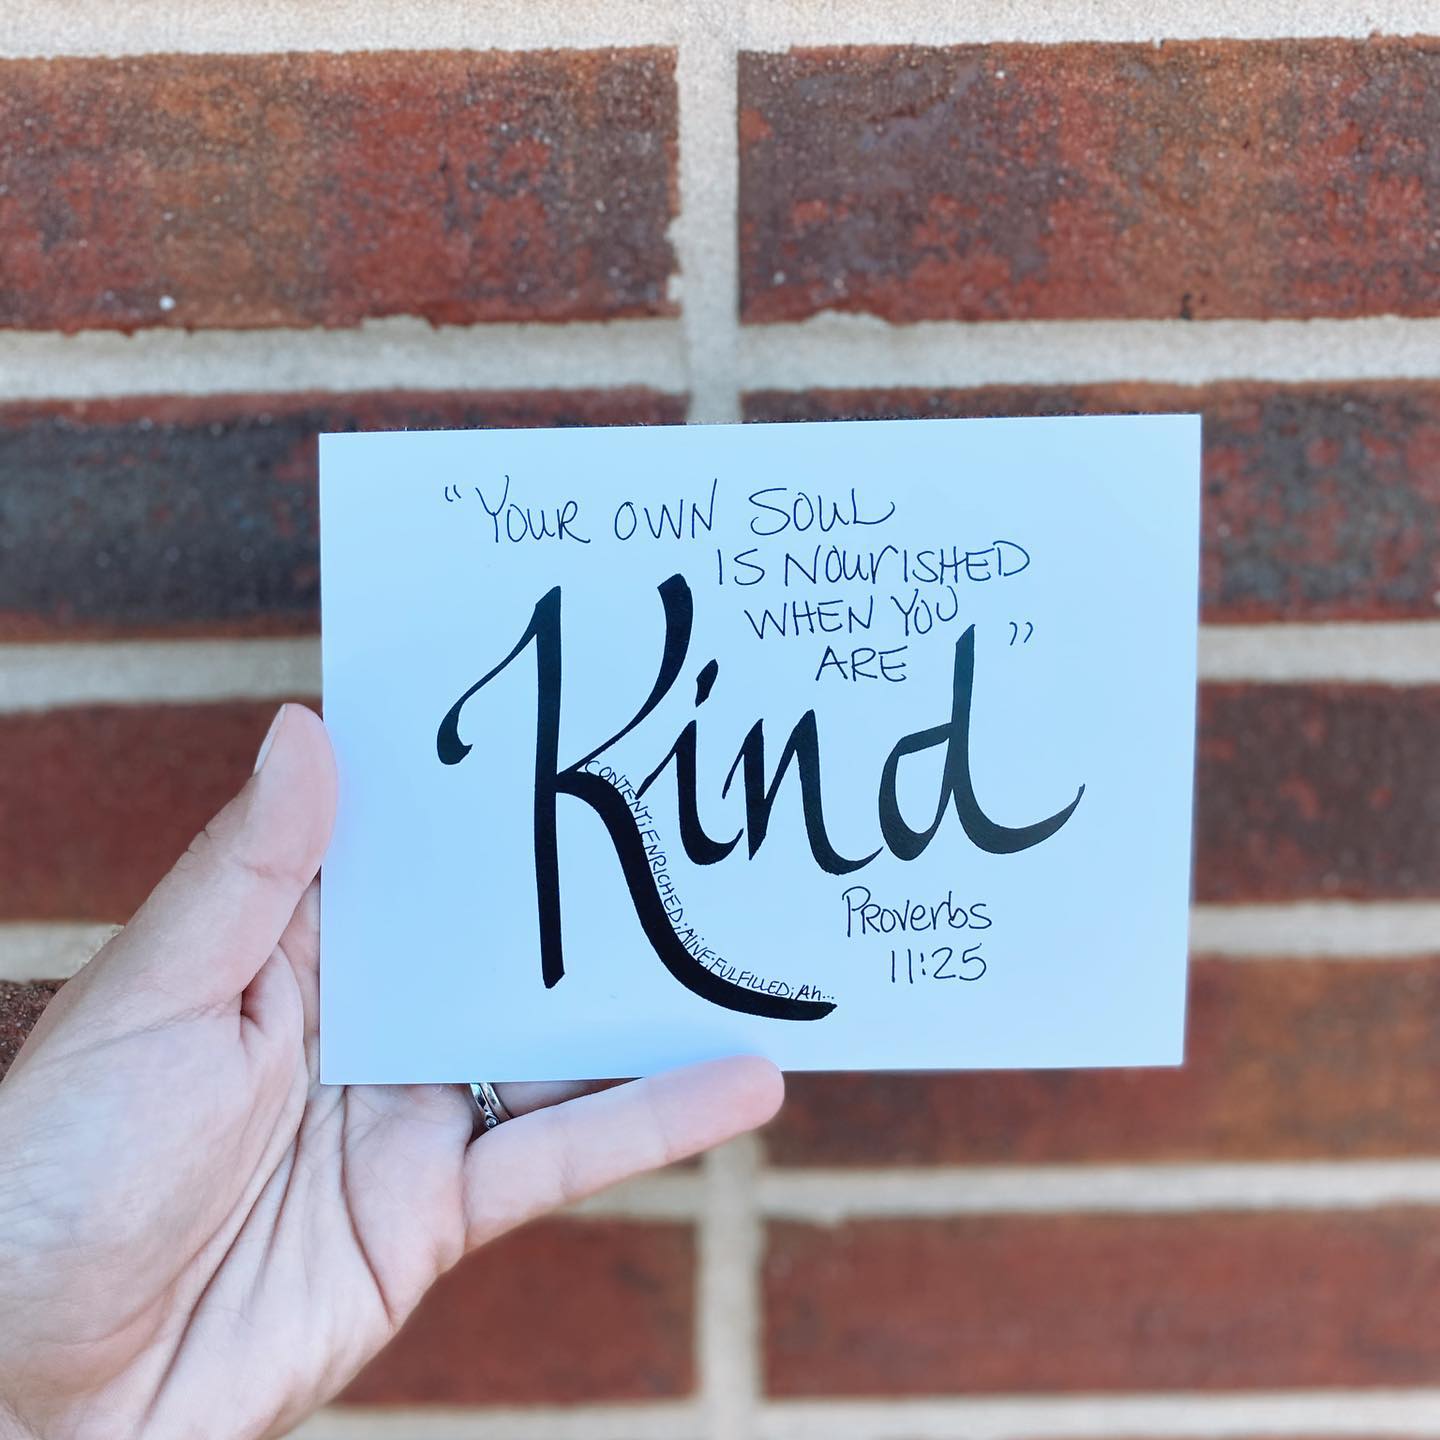 "YOUR OWN SOUL
IS NOURISHED
WHEN YOU
ARE
Kind"
CONTENT; ENRICHED; Alive; FULFILLED; Ah...
Proverbs
11:25